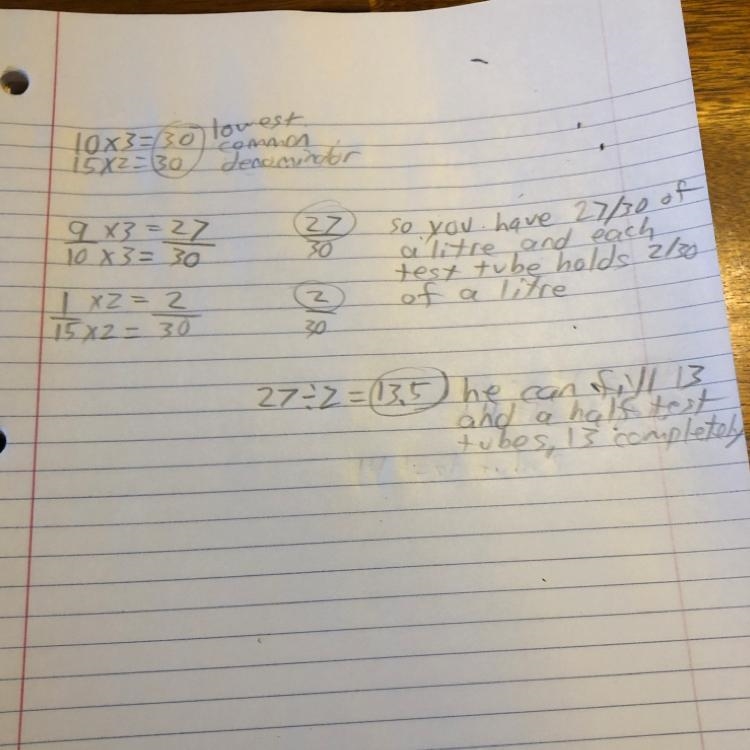 10x3=30 lowest
common
15x2=30 denominator
9 x3 = 27
10 x3 = 30
27
30
so you have 27/30 of
a litre and each
test tube holds 2/30
of a litre
1 x2 = 2
15 x2 = 30
2
30
27÷2=13.5 he can fill 13
and a half test
tubes, 13 completely